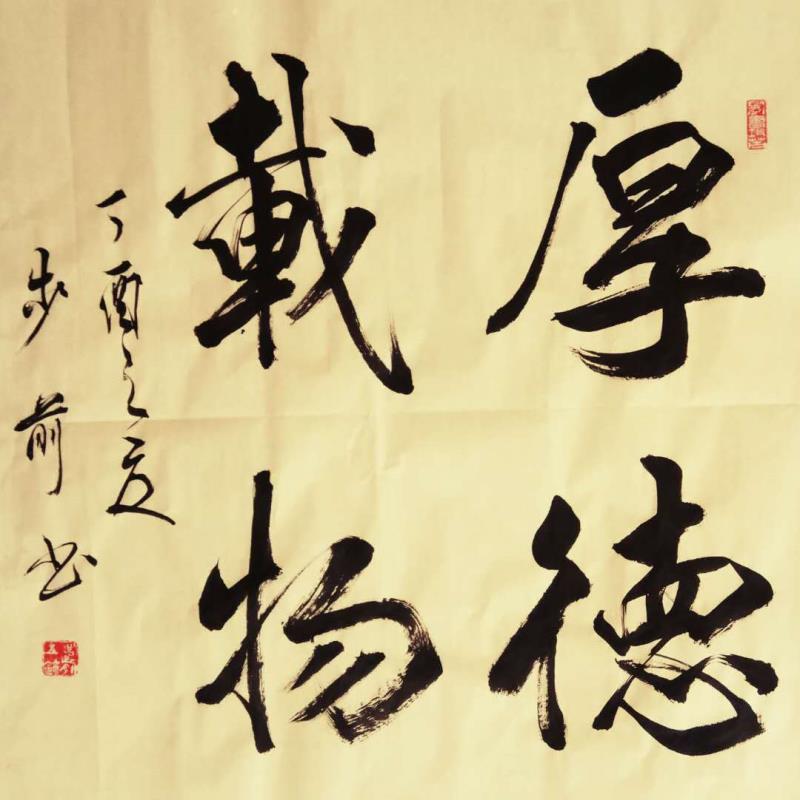 厚德
載物
丁酉之夏
步前书